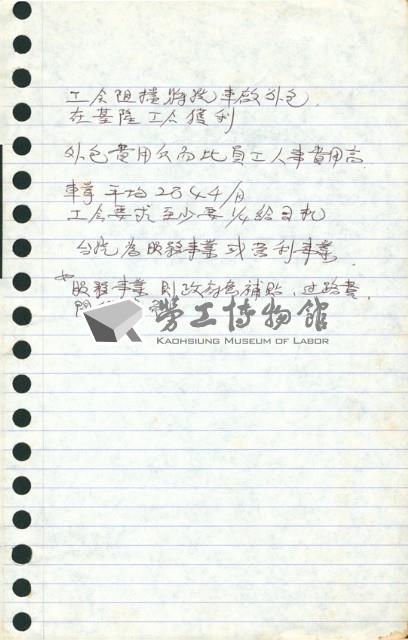 工会阻擋將洗車啟外包.
在基隆工会獲利
外包費用反而比員工人事費用高.
車掌平均2344/月
工会要求至少要1/4給司机
台汽為服務事業或营利事業
服務事業則政府為補貼、过路費.
門
勞工博物館
KAOHSIUNG MUSEUM OF LABOR